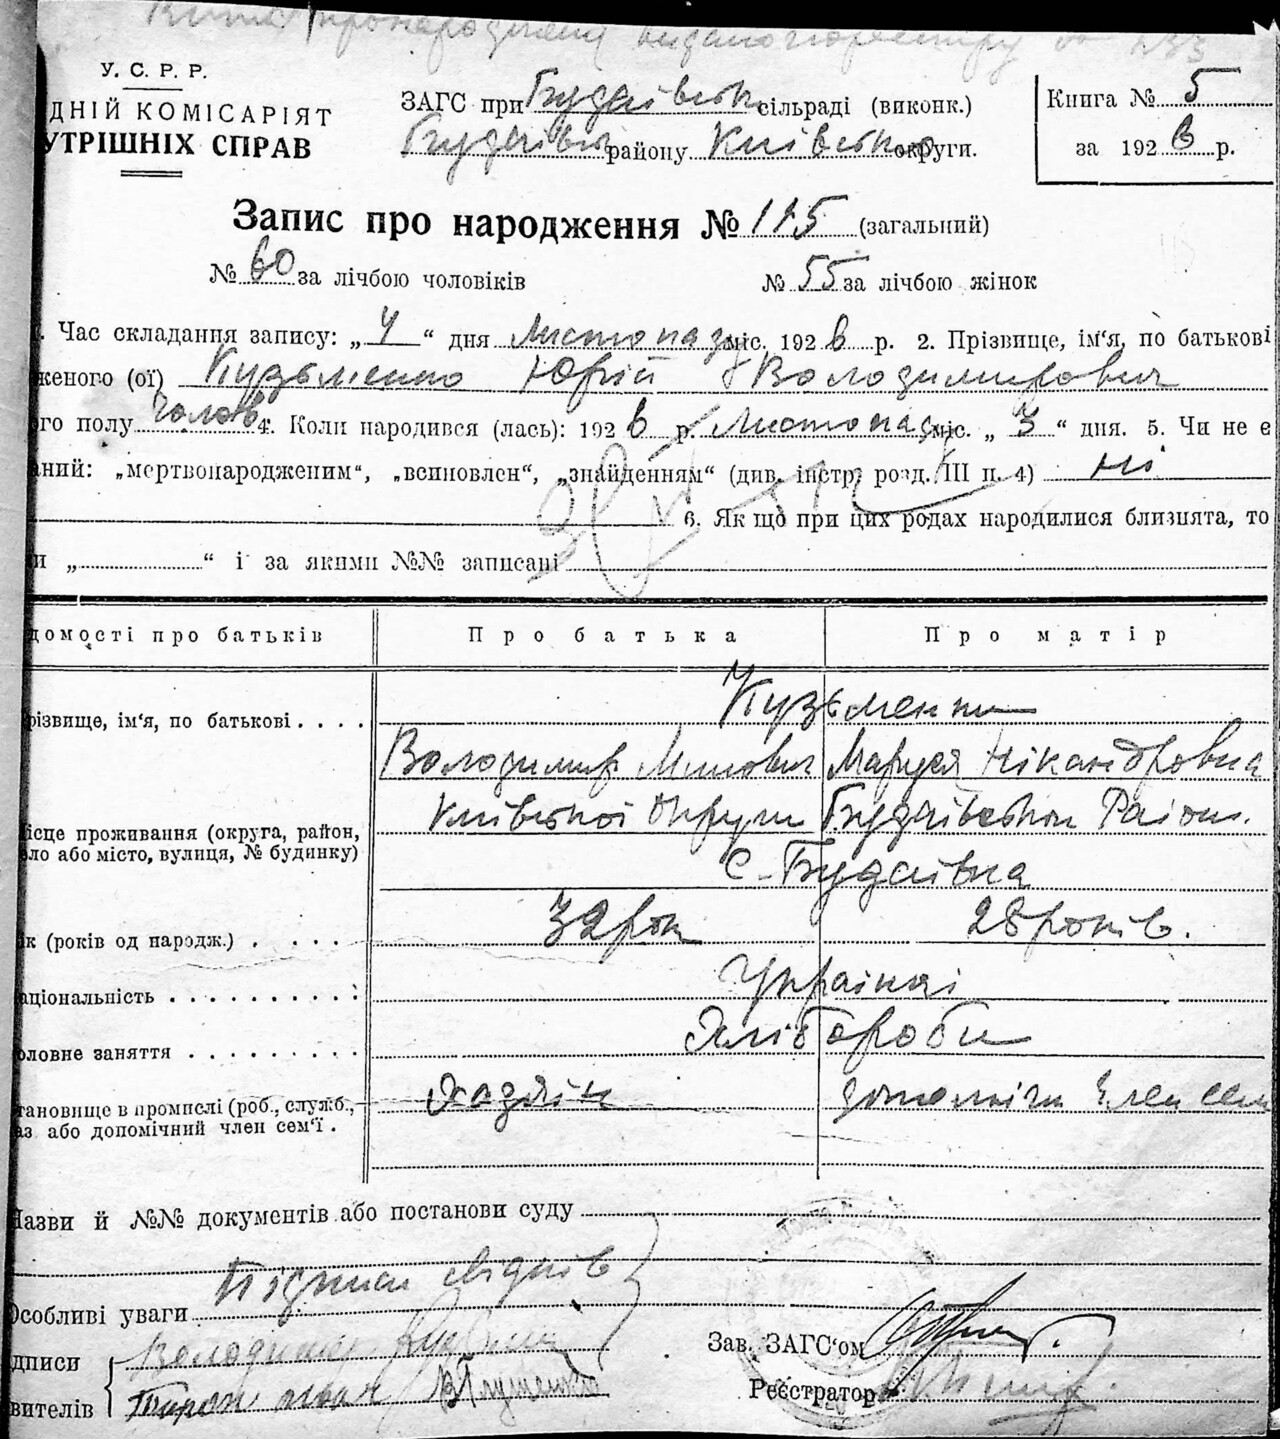 У. С. Р. Р.
ДНІЙ КОМІСАРІЯТ
УТРІШНІХ СПРАВ
ЗАГС при Будаівськ сільраді (виконк.)
району Київської округи.
Книга № 5
за 1926 р.
Запис про народження № 115 (загальний)
№ 60 за лічбою чоловіків № 55 за лічбою жінок
Час складання запису: „4“ дня Листопаду міс. 1926 р. 2. Прізвище, ім'я, по батькові
женого (ої) Кузьменко Юрій Володимирович
го полу чолов 4. Коли народився (лась): 1926 р. Листопад міс. „3“ дня. 5. Чи не є
аний: „мертвонародженим“, „всиновлен“, „знайденням“ (див. інстр. розд. III п. 4) ні
6. Як що при цих родах народилися близнята, то
и „ “ і за якими №№ записані
домості про батьків Про батька Про матір
різвище, ім'я, по батькові . . . . Кузьменки
Володимир Маруся Нікандровна
ісце проживання (округа, район, Київської Округи Будаівської Район.
ло або місто, вулиця, № будинку)
с. Будаівка
к (років од народж.) . . . . 32 рок 28 років.
аціональність . . . . . . . . . . Українці
оловне заняття . . . . . . . . . Хлібороби
тановище в промислі (роб., служб., Хазяін допоміжн член сем
аз або допомічний член сем'ї .
Назви й №№ документів або постанови суду
Підписи свідків
Особливі уваги
дписи Володимир
вителів
Зав. ЗАГС'ом
Реєстратор